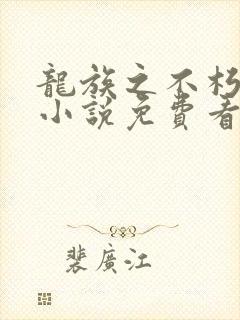 龍族之不朽
小說免費看
裴廣江